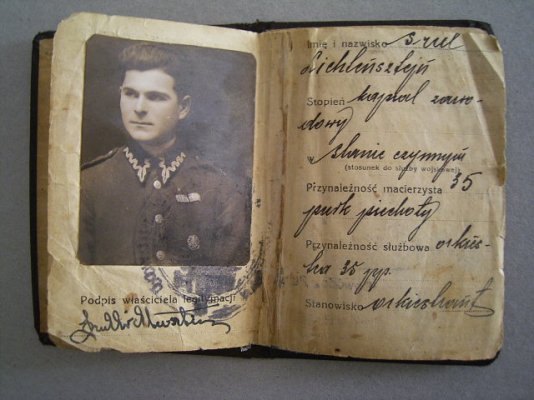 Podpis właściciela legitymacji
Imię i nazwisko Srul
Lichtensztejn
Stopień kapral zawo-
dowy
w stanie czynnym
(stosunek do służby wojskowej)
Przynależność macierzysta 35
pułk piechoty
Przynależność służbowa orkies-
tra 35 pp.
Stanowisko orkiestrant